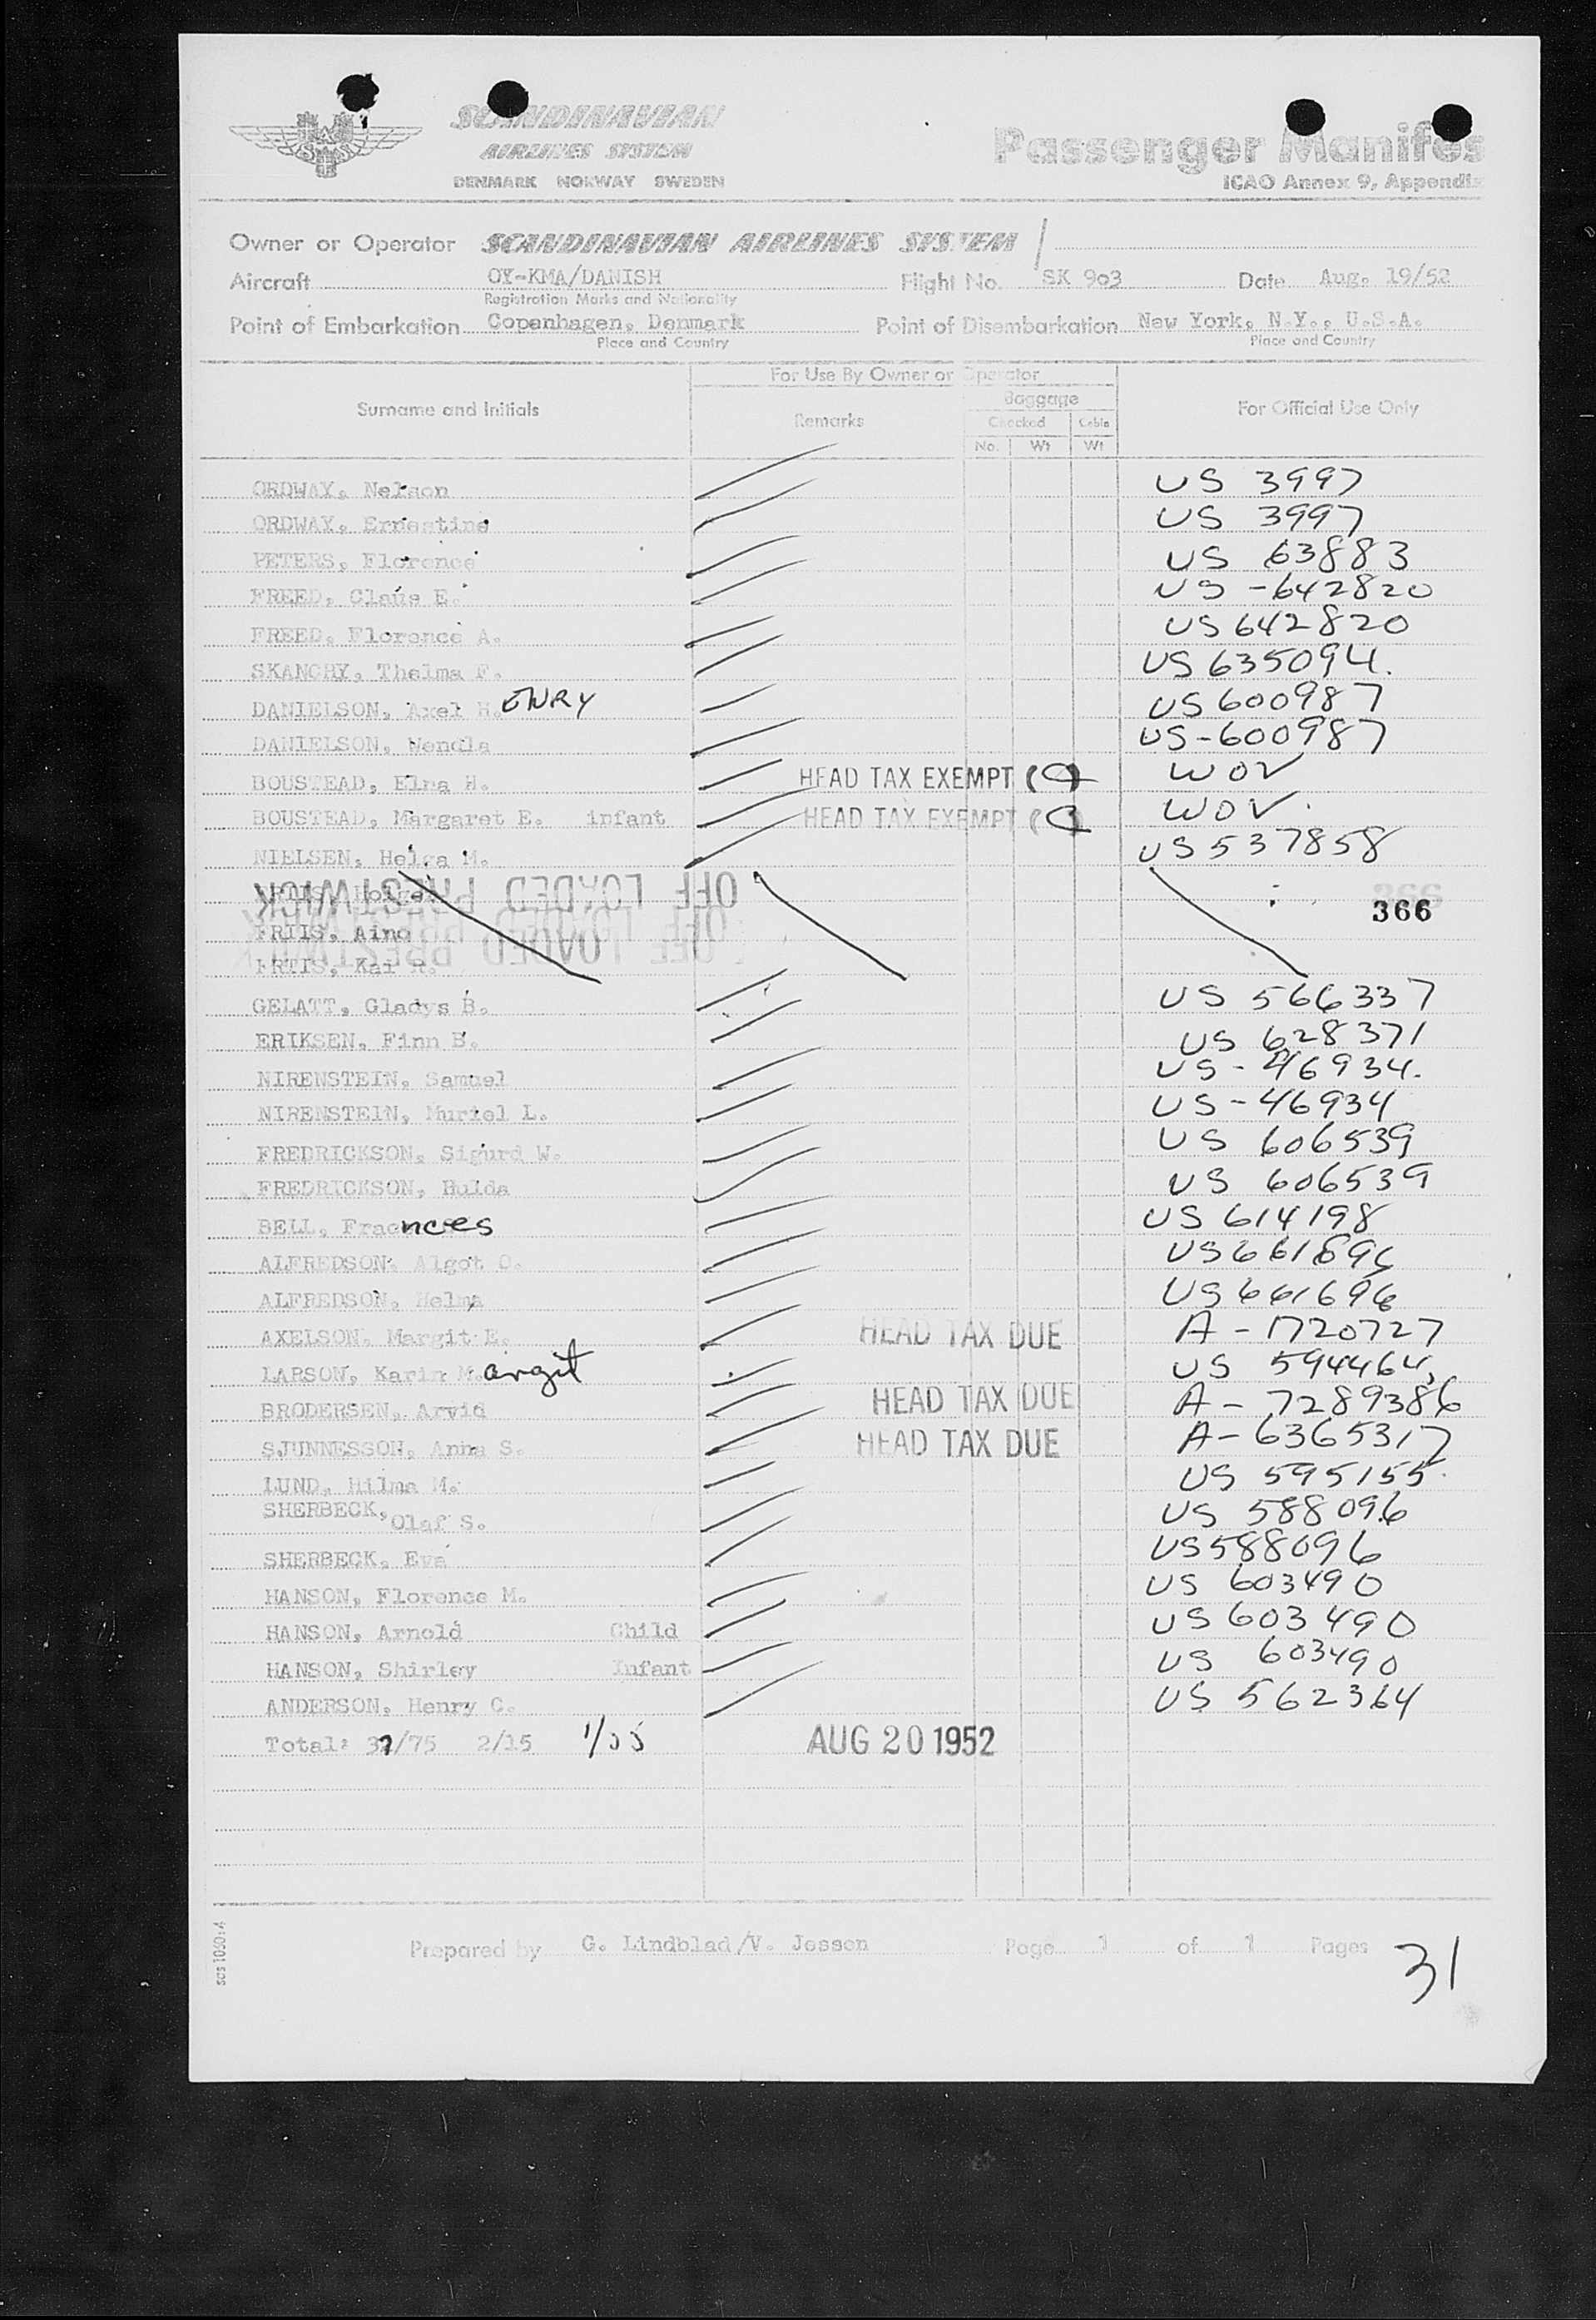 SCANDINAVIAN
AIRLINES SYSTEM
DENMARK NORWAY SWEDEN
Passenger Manifes
ICAO Annex 9, Appendix
Owner or Operator SCANDINAVIAN AIRLINES SYSTEM
Aircraft OY-KMA/DANISH Flight No. SK 903 Date Aug. 19/52
Registration Marks and Nationality
Point of Embarkation Copenhagen, Denmark Point of Disembarkation New York, N.Y., U.S.A.
Place and Country Place and Country
For Use By Owner or Operator
Surname and Initials Remarks Baggage For Official Use Only
Checked Cabin
No. Wt Wt
ORDWAY, Nelson US 3997
ORDWAY, Ernestine US 3997
PETERS, Florence US 63883
FREED, Claus E. US -642820
FREED, Florence A. US 642820
SKANCHY, Thelma F. US 635094.
DANIELSON, Axel H. ENRY US 600987
DANIELSON, Wendla US-600987
BOUSTEAD, Elna H. HEAD TAX EXEMPT WOV
BOUSTEAD, Margaret E. infant HEAD TAX EXEMPT WOV.
NIELSEN, Helga M. US 537858
OFF LOADED PRESTWICK
366
FRIIS, Aino
OFF LOADED PRESTWICK
FRIIS, Kai R.
GELATT, Gladys B. US 566337
ERIKSEN, Finn B. US 628371
NIRENSTEIN, Samuel US - 46934.
NIRENSTEIN, Muriel L. US-46934
FREDRICKSON, Sigurd W. US 606539
FREDRICKSON, Hulda US 606539
BELL, Fracnces US 614198
ALFREDSON, Algot O. US
ALFREDSON, Helma US 661696
AXELSON, Margit E. HEAD TAX DUE A -
LARSON, Karin M. argit US 594464,
BRODERSEN, Arvid HEAD TAX DUE A - 7289386
SJUNNESSON, Anna S. HEAD TAX DUE A-6365317
LUND, Hilma M. US 595155
SHERBECK, Olaf S. US 588096
SHERBECK, Eva US 588096
HANSON, Florence M. US 603490
HANSON, Arnold Child US 603490
HANSON, Shirley Infant US 603490
ANDERSON, Henry C. US 562364
Total: /75 2/15 AUG 20 1952
scs 1050:4
Prepared by G. Lindblad/V. Jessen Page 1 of 1 Pages
31